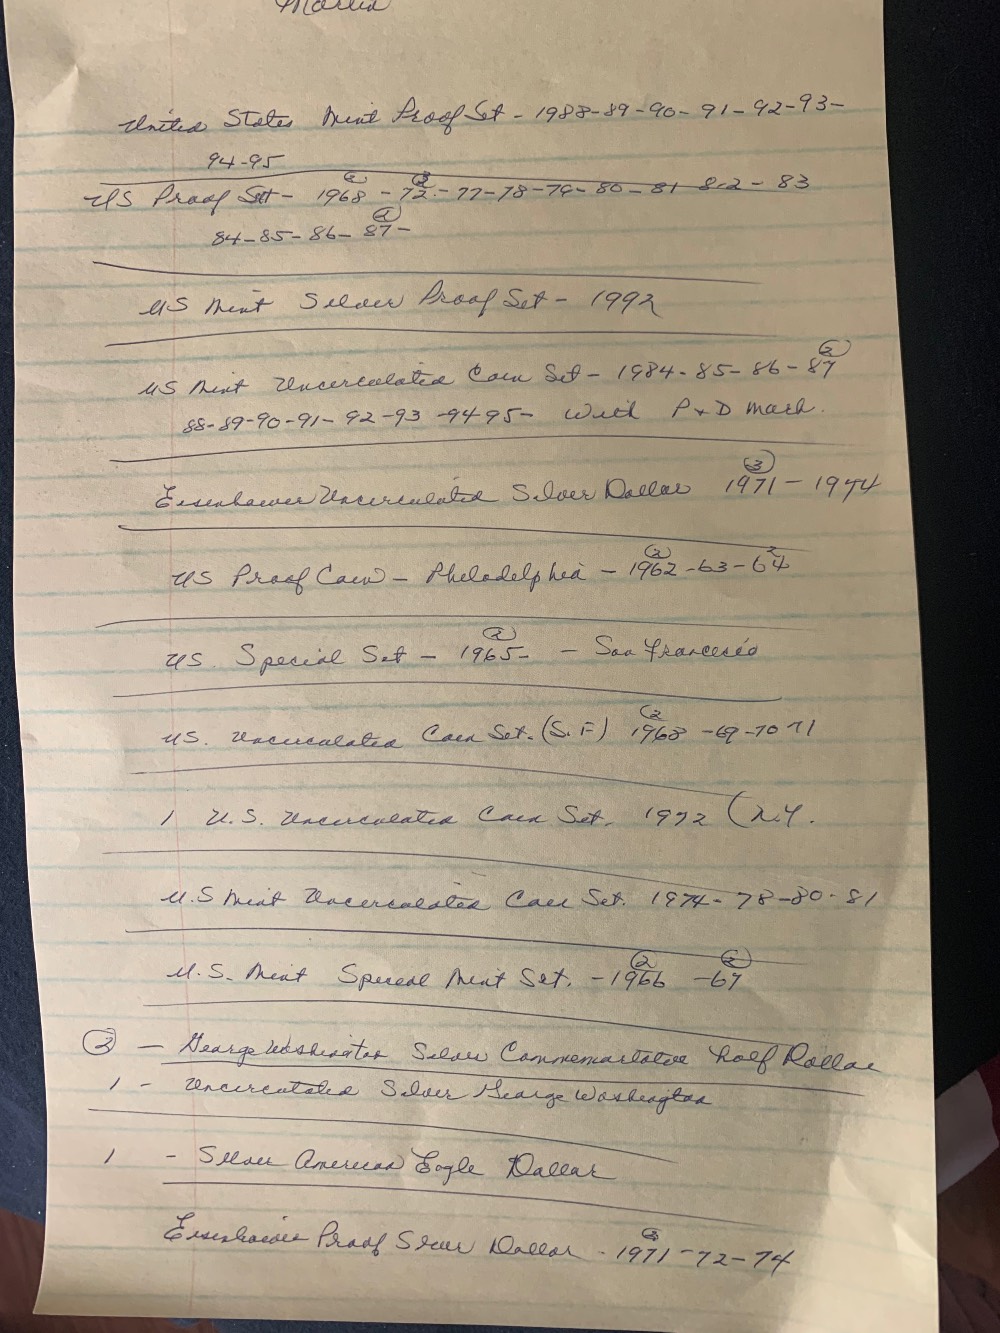 United States Mint Proof Set - 1988-89-90-91-92-93-
94-95
US Proof Set - 1968 - 72 - 77-78-79-80-81 82 - 83
84-85-86-87-
US Mint Silver Proof Set - 1992
US Mint Uncirculated Coin Set - 1984-85-86-87
88-89-90-91-92-93-94 95- With P + D mark.
Eisenhower Uncirculated Silver Dollar 1971 - 1974
US Proof Coin - Philadelphia - 1962-63-64
US. Special Set - 1965- - San Francisco
US. Uncirculated Coin Set. (S.F) 1968 -69-70 71
1 U.S. Uncirculated Coin Set. 1972 (N.Y.
U.S Mint Uncirculated Coin Set. 1974-78-80-81
U.S. Mint Special Mint Set. - 1966 -67
2 - George Washington Silver Commemorative half Dollar
1 - Uncirculated Silver George Washington
1 - Silver American Eagle Dollar
Eisenhower Proof Silver Dollar - 1971-72-74